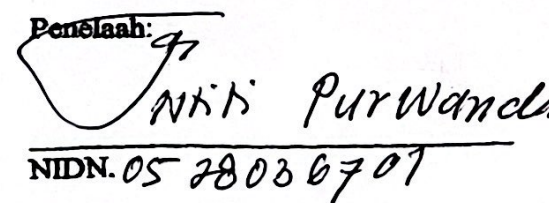 Penelaah:
Ntiti Purwanda
NIDN. 0528036701